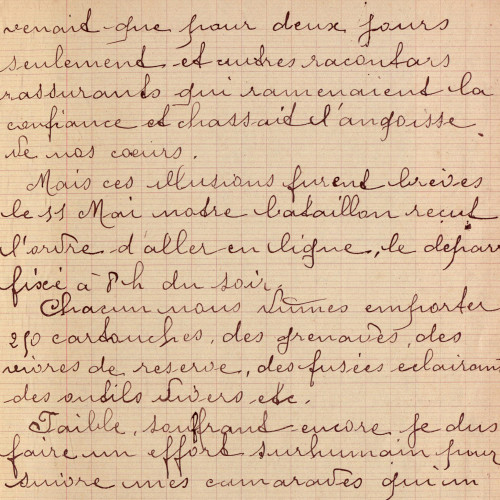 venait que pour deux jours
seulement et autres racontars
rassurants qui ramenaient la
confiance et chassait l'angoisse
de nos coeurs.
Mais ces illusions furent brèves
le 11 Mai notre bataillon reçut
l'ordre d'aller en ligne, le départ
fixé à 8 h du soir.
Chacun nous dûmes emporter
250 cartouches, des grenades, des
vivres de reserve, des fusées eclairant
des outils divers etc.
Faible, souffrant encore je dus
faire un effort surhumain pour
suivre mes camarades qui m